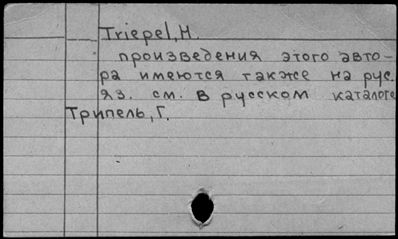 Triepel, H.
произведения этого авто-
ра имеются также на рус.
яз. см. в русском каталоге
Трипель, Г.